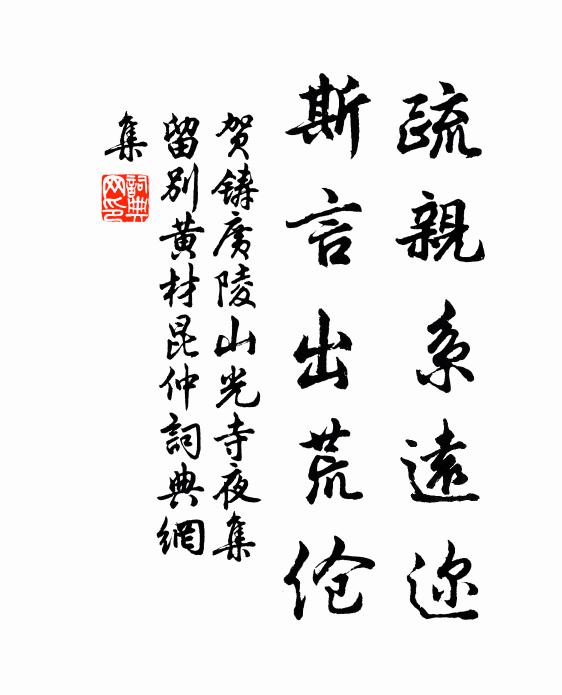 疏親系遠迩
斯言出荒伧
贺鑄廣陵山光寺夜集
留别黄材昆仲詞典網
集
詞典
网印